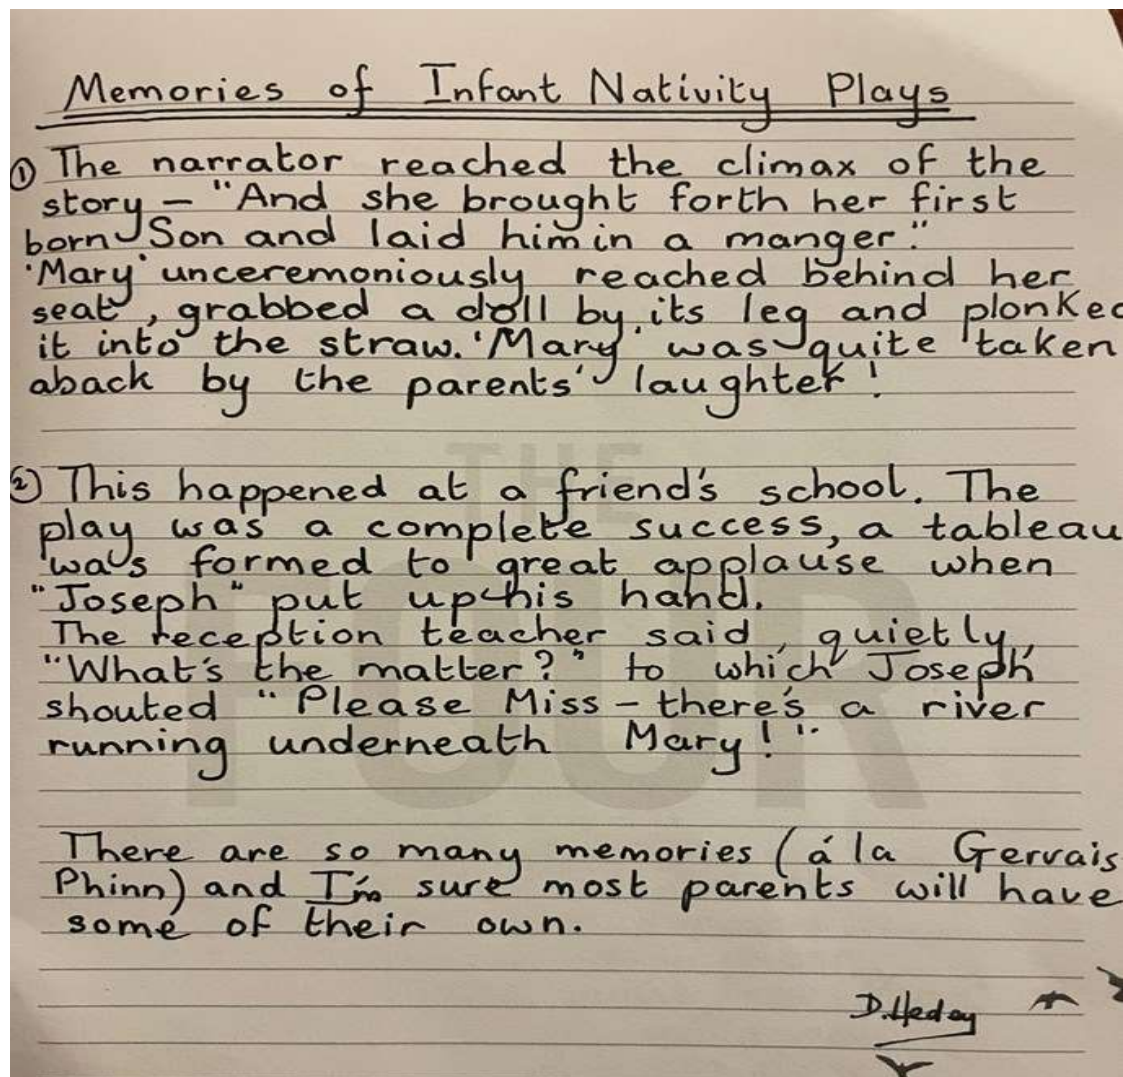 Memories of Infant Nativity Plays
① The narrator reached the climax of the
story – "And she brought forth her first
born Son and laid him in a manger."
'Mary' unceremoniously reached behind her
seat, grabbed a doll by its leg and plonked
it into the straw. 'Mary' was quite taken
aback by the parents' laughter!
② This happened at a friend's school. The
play was a complete success, a tableau
was formed to great applause when
"Joseph" put up his hand.
The reception teacher said, quietly,
"What's the matter?" to which 'Joseph'
shouted "Please Miss – there's a river
running underneath Mary!".
There are so many memories (á la Gervais
Phinn) and I'm sure most parents will have
some of their own.
THE
FOUR